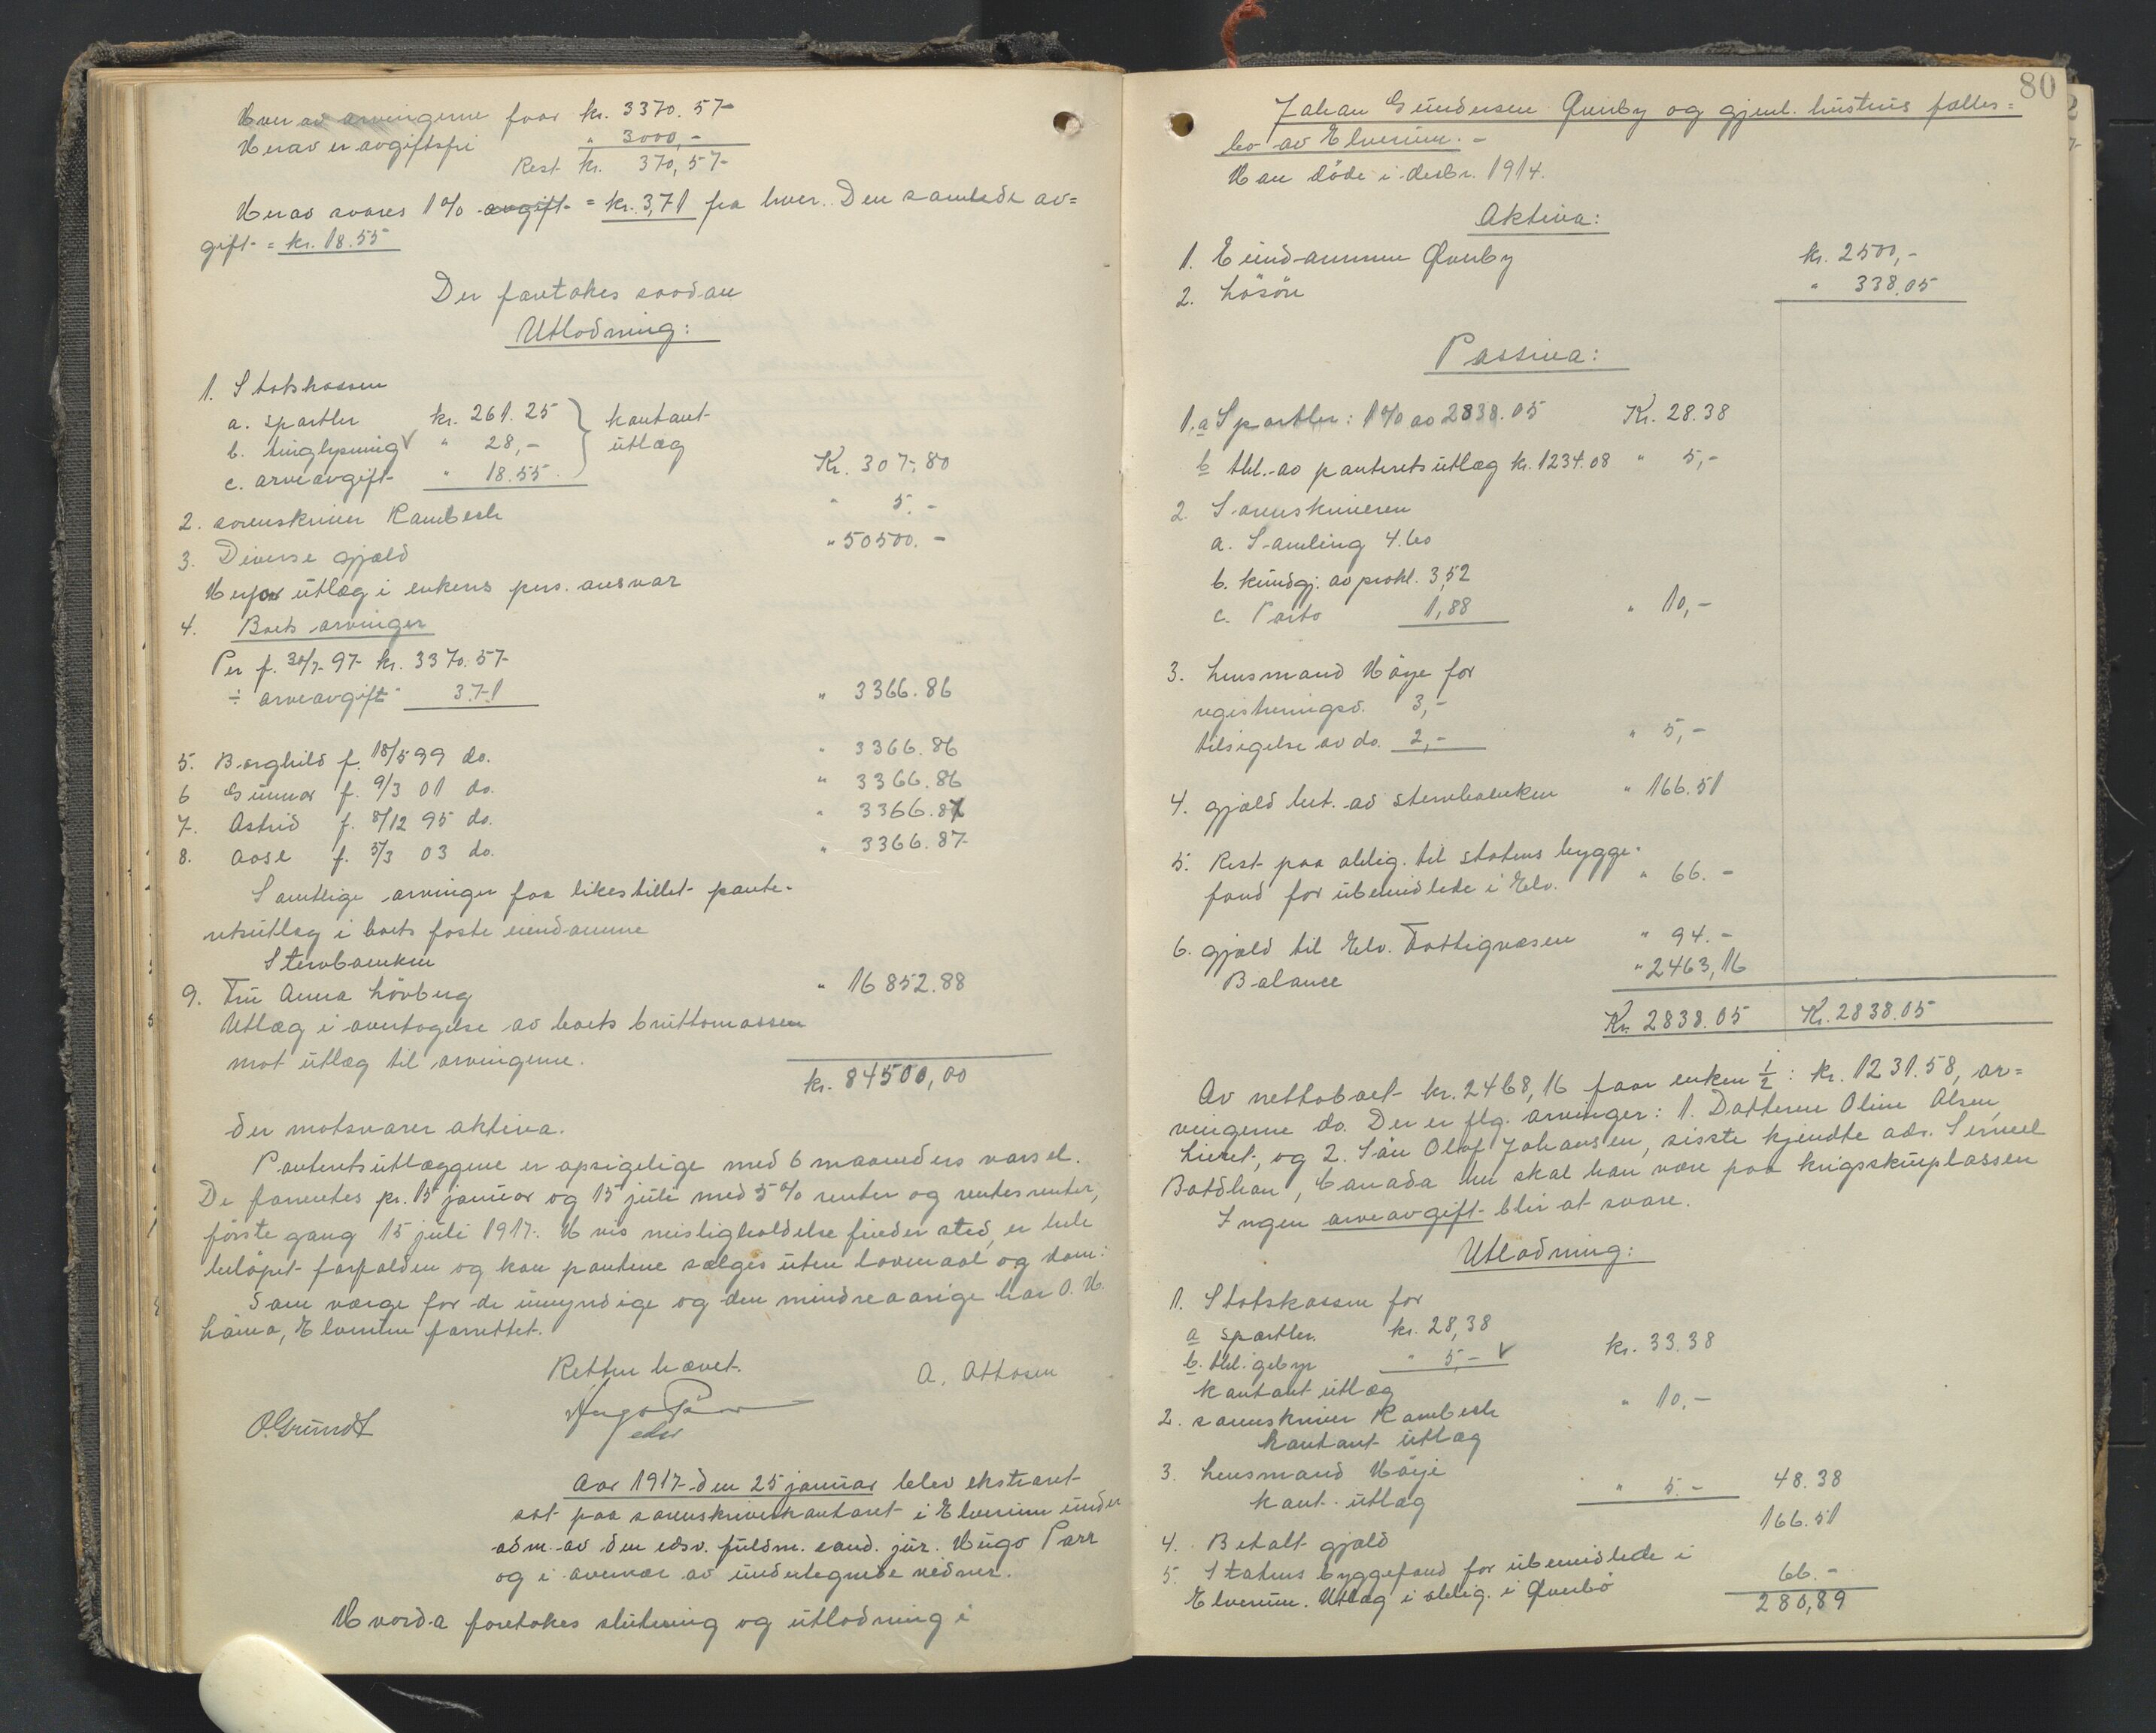 Hver av arvingerne faar kr. 3370.57
Herav er avgiftsfri " 3000,-
Rest kr. 370,57
Herav svares 1% avgift = kr. 3,71 fra hver. Den samlede av=
gift = kr. 18.55
Der foretokes saadan
Utlodning:
1. Statskassen
a. sportler kr. 261.25 } kontant
b. tinglysning " 28,- utlæg
c. arveavgift " 18.55 Kr. 307,80
2. sorenskriver Rambech " 5.-
3. Diverse gjæld " 50500.-
Herfor utlæg i enkens pers. ansvar
4. Boets arvinger
Per f. 30/7 97 kr. 3370.57
÷ arveavgift 3.71 " 3366.86
5. Borghild f. 18/5 99 do. " 3366.86
6 Gunnar f. 9/3 01 do. " 3366.86
7. Astrid f. 8/12 95 do. " 3366.87
8. Aase f. 5/3 03 do. " 3366.87
Samtlige arvinger faa likestillet pante-
retsutlæg i boets faste eiendomme
Stervboenken
9. Fru Anna Lövberg " 16852.88
Utlæg i overtagelse av boets bruttomassen
mot utlæg til arvingerne.
kr. 84500,00
der motsvarer aktiva.
Panteretsutlæggene er opsigelige med 6 maaneders varsel.
De forrentes pr. 15 januar og 15 juli med 5% renter og rentesrenter,
förste gang 15 juli 1917. Hvis misligholdelse finder sted, er hele
belöpet forfalden og kan pantene sælges uten lovmaal og dom.
Som værge for de umyndige og den mindreaarige har O. H.
Elverum forrettet.
Retten hævet.
O. Grundt Hugo Parr A. Ottosen
edsv
Aar 1917 den 25 januar blev ekstraret
sat paa sorenskriverkontoret i Elverum under
adm. av den edsv. fuldm. cand. jur. Hugo Parr
og i overvær av undertegnede vidner.
Hvorda foretokes slutning og utlodning i
80
Johan Gundersen Överby og gjenl. hustrus fælles=
bo av Elverum.-
Han döde i desbr. 1914.
Aktiva:
1. Eiendommen Överby kr. 2500,-
2. Lösöre " 338.05
Passiva:
1.a Sportler: 1% av 2838.05 Kr. 28.38
b thl. av panteretsutlæg kr. 1234.08 " 5,-
2. Sorenskriveren
a. Samling 4.60
b. kundgj. av prokl. 3,52
c. Porto 1,88 " 10,-
3. lensmand Höye for
registreringsf. 3,-
tilsigelse av do. 2,- " 5,-
4. gjæld bet. av stervboenken " 166.51
5. Rest paa oblig. til statens bygge-
fond for ubemidlede i Elv. " 66.-
6. gjæld til Elv. Fattigvæsen " 94.-
Balance " 2463,16
Kr. 2838.05 Kr. 2838.05
Av nettoboet kr. 2468,16 faar enken 1/2: kr. 1231.58, ar=
vingerne do. Der er flg. arvinger: 1. Datteren Oline Olsen,
og 2. Sön Olaf Johansen, sisste kjendte adr.
Canada nu skal han være paa krigsskueplassen
Ingen arveavgift blir at svare.
Utlodning:
1. Statskassen for
a sportler. kr. 28,38
b. thl. gebyr " 5,- kr. 33.38
kontant utlæg
2. sorenskriver Rambech " 10,-
kontant utlæg
3. lensmand Höye
kont. utlæg " 5.- 48.38
4. Betalt gjæld 166.51
5. Statens byggefond for ubemidlede i
Elverum. Utlæg i oblig. i Överbö 66.-
280,89